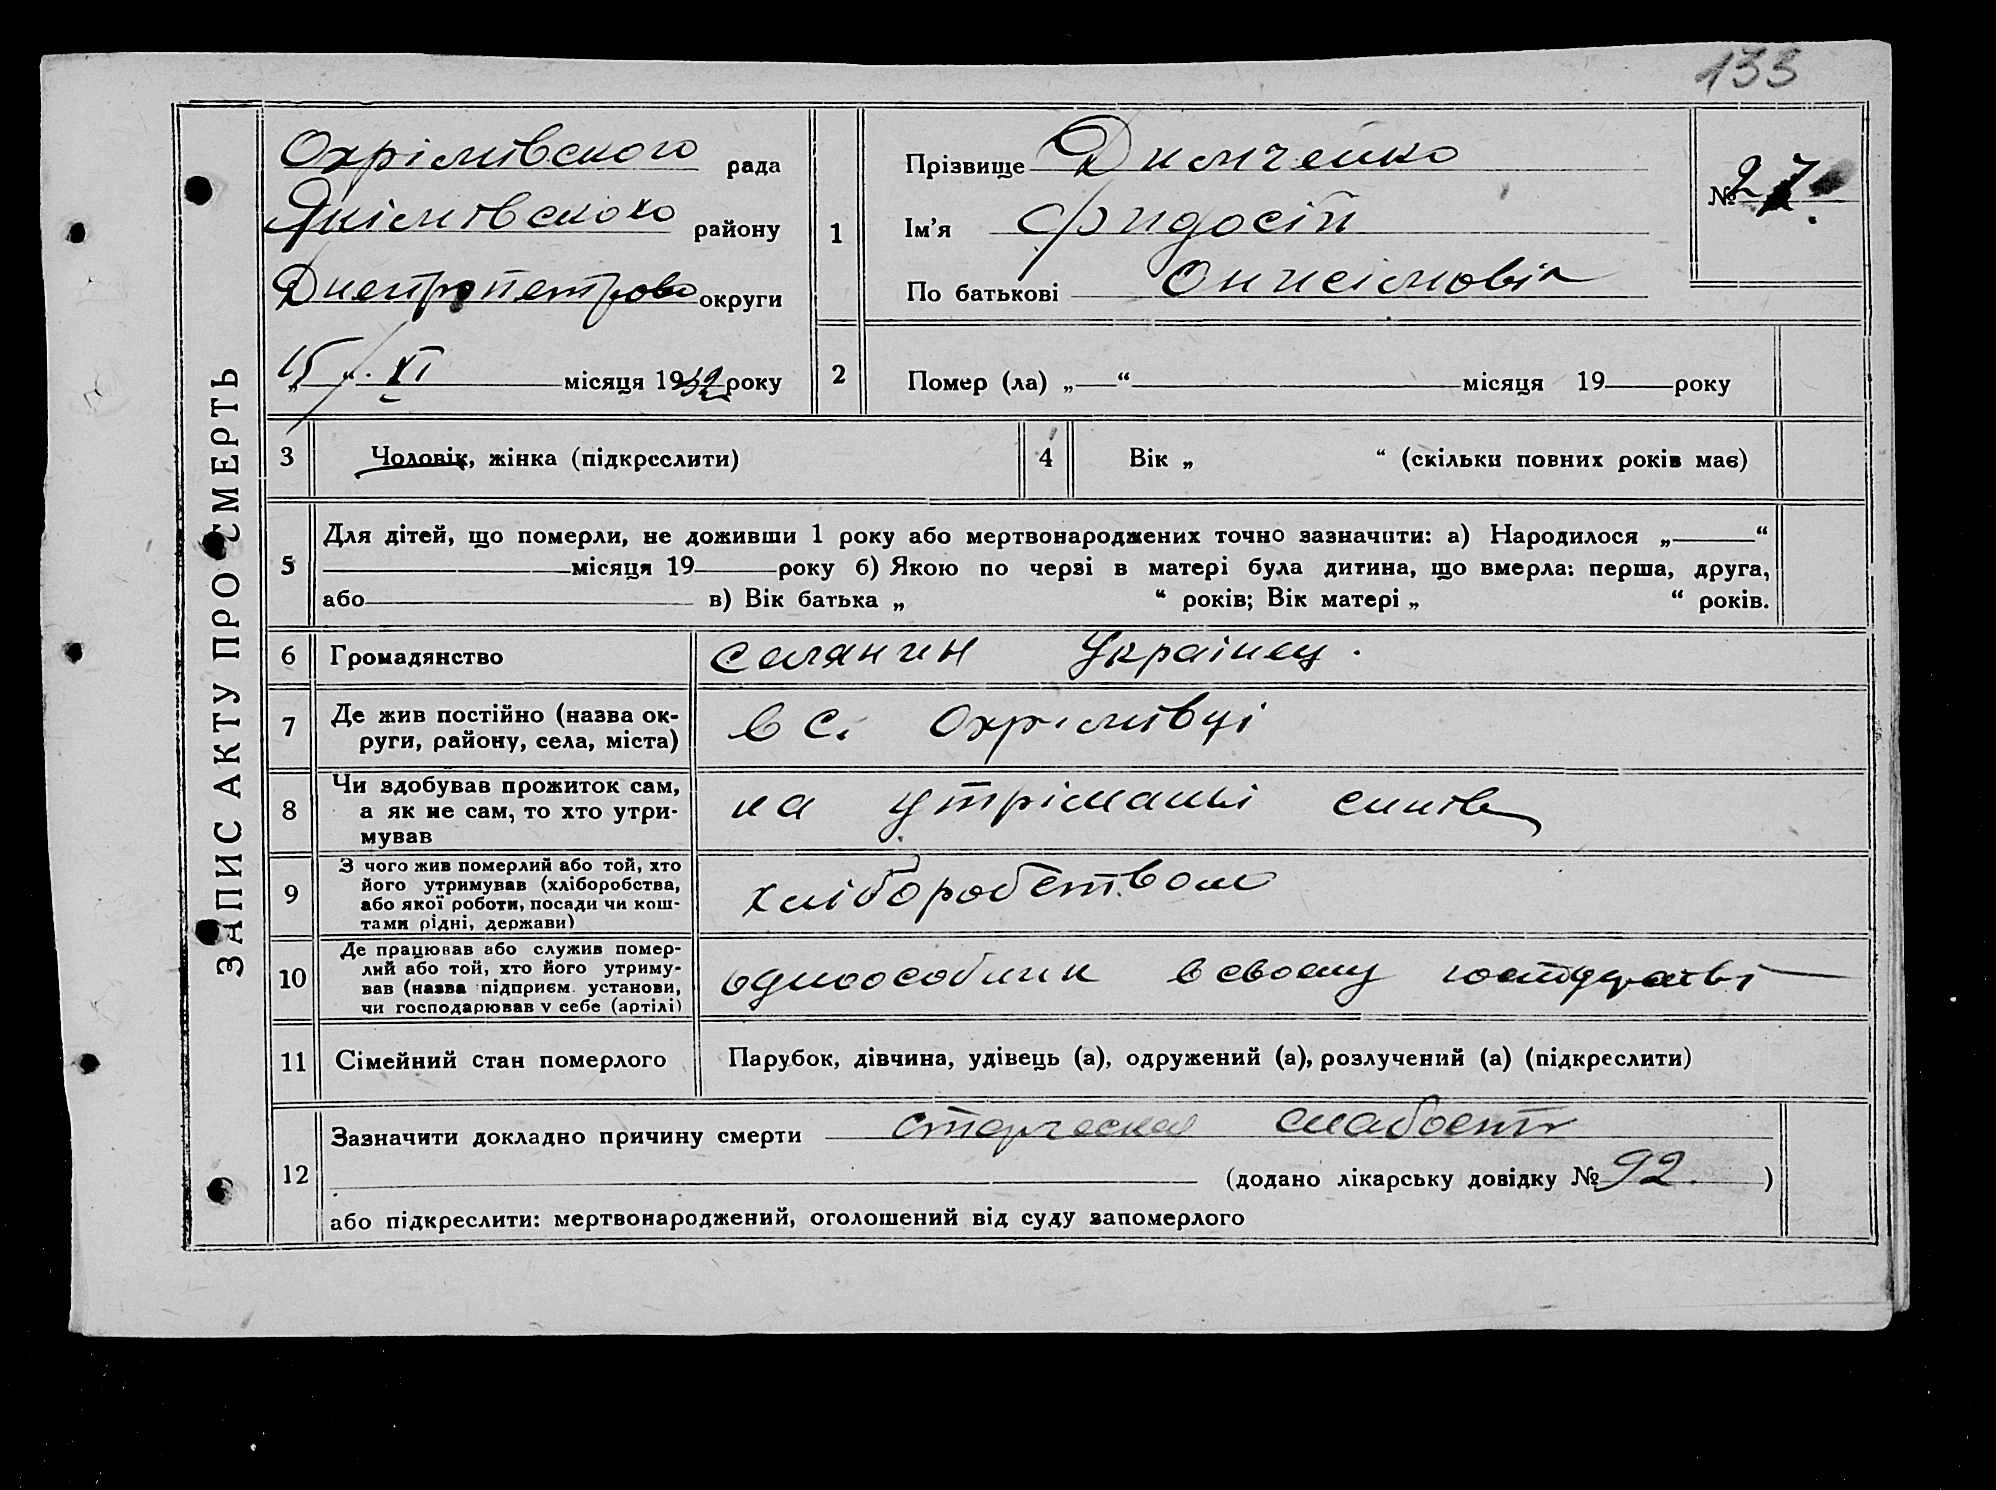 133
ЗАПИС АКТУ ПРО СМЕРТЬ
Охрімивского рада
Якімівского району
Днепропетрово округи
„15“ XI місяця 1932 року
1
Прізвище Димченко
Ім'я Фидосій
По батькові Онисімовіч
№ 27.
2
Помер (ла) „ “ місяця 19 року
3
Чоловік, жінка (підкреслити)
4
Вік „ “ (скільки повних років має)
5
Для дітей, що померли, не доживши 1 року або мертвонароджених точно зазначити: а) Народилося „ “
місяця 19 року б) Якою по черзі в матері була дитина, що вмерла: перша, друга,
або в) Вік батька „ “ років; Вік матері „ “ років.
6
Громадянство
селянин Українец.
7
Де жив постійно (назва ок-
руги, району, села, міста)
в с. Охримивці
8
Чи здобував прожиток сам,
а як не сам, то хто утри-
мував
на утріманьі синів
9
З чого жив померлий або той, хто
його утримував (хліборобства,
або якої роботи, посади чи кош-
тами рідні, держави)
хліборобством
10
Де працював або служив помер-
лий або той, хто його утриму-
вав (назва підприєм. установи,
чи господарював у себе (артілі)
одноособник в своему
11
Сімейний стан померлого
Парубок, дівчина, удівець (а), одружений (а), розлучений (а) (підкреслити)
12
Зазначити докладно причину смерти старческая слабость
(додано лікарську довідку № 92. )
або підкреслити: мертвонароджений, оголошений від суду запомерлого